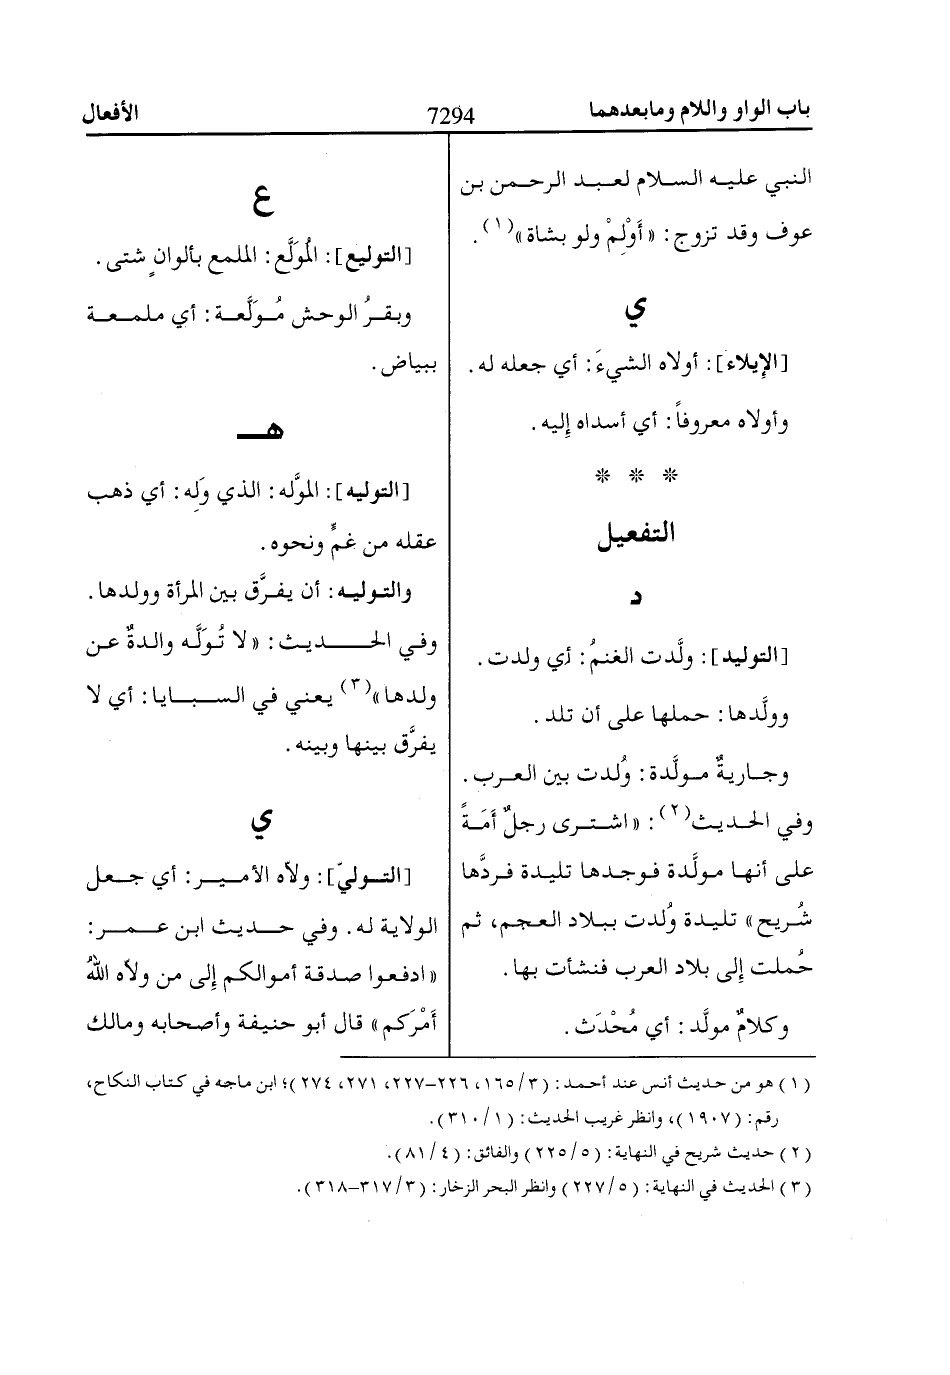 باب الواو واللام ومابعدهما
7294
الأفعال
النبي عليه السلام لعبد الرحمن بن
عوف وقد تزوج: «أَوْلِمْ ولو بشاة»(١).
ي
[الإيلاء]: أولاه الشيءَ: أي جعله له.
وأولاه معروفاً: أي أسداه إليه.
* * *
التفعيل
د
[التوليد]: ولَّدت الغنمُ: أي ولدت.
وولَّدها: حملها على أن تلد.
وجاريةٌ مولَّدة: وُلدت بين العرب.
وفي الحديث(٢): «اشترى رجلٌ أمَةً
على أنها مولَّدة فوجدها تليدة فردَّها
شُريح» تليدة وُلدت ببلاد العجم، ثم
حُملت إلى بلاد العرب فنشأت بها.
وكلامٌ مولَّد: أي مُحْدَث.
ع
[التوليع]: المُوَلَّع: الملمع بألوانٍ شتى.
وبقرُ الوحش مُولَّعة: أي ملمعة
ببياض.
هـ
[التوليه]: المولَّه: الذي وَلِه: أي ذهب
عقله من غمٍّ ونحوه.
والتوليه: أن يفرَّق بين المرأة وولدها.
وفي الحديث: «لا تُولَّه والدةٌ عن
ولدها»(٣) يعني في السبايا: أي لا
يفرَّق بينها وبينه.
ي
[التوليّ]: ولاّه الأمير: أي جعل
الولاية له. وفي حديث ابن عمر:
«ادفعوا صدقة أموالكم إلى من ولاّه اللّهُ
أمْرَكم» قال أبو حنيفة وأصحابه ومالك
(١) هو من حديث أنس عند أحمد: (٣/١٦٥، ٢٢٦–٢٢٧، ٢٧١، ٢٧٤)؛ ابن ماجه في كتاب النكاح،
رقم: (١٩٠٧)، وانظر غريب الحديث: (١/٣١٠).
(٢) حديث شريح في النهاية: (٥/٢٢٥) والفائق: (٤/٨١).
(٣) الحديث في النهاية: (٥/٢٢٧) وانظر البحر الزخار: (٣/٣١٧–٣١٨).